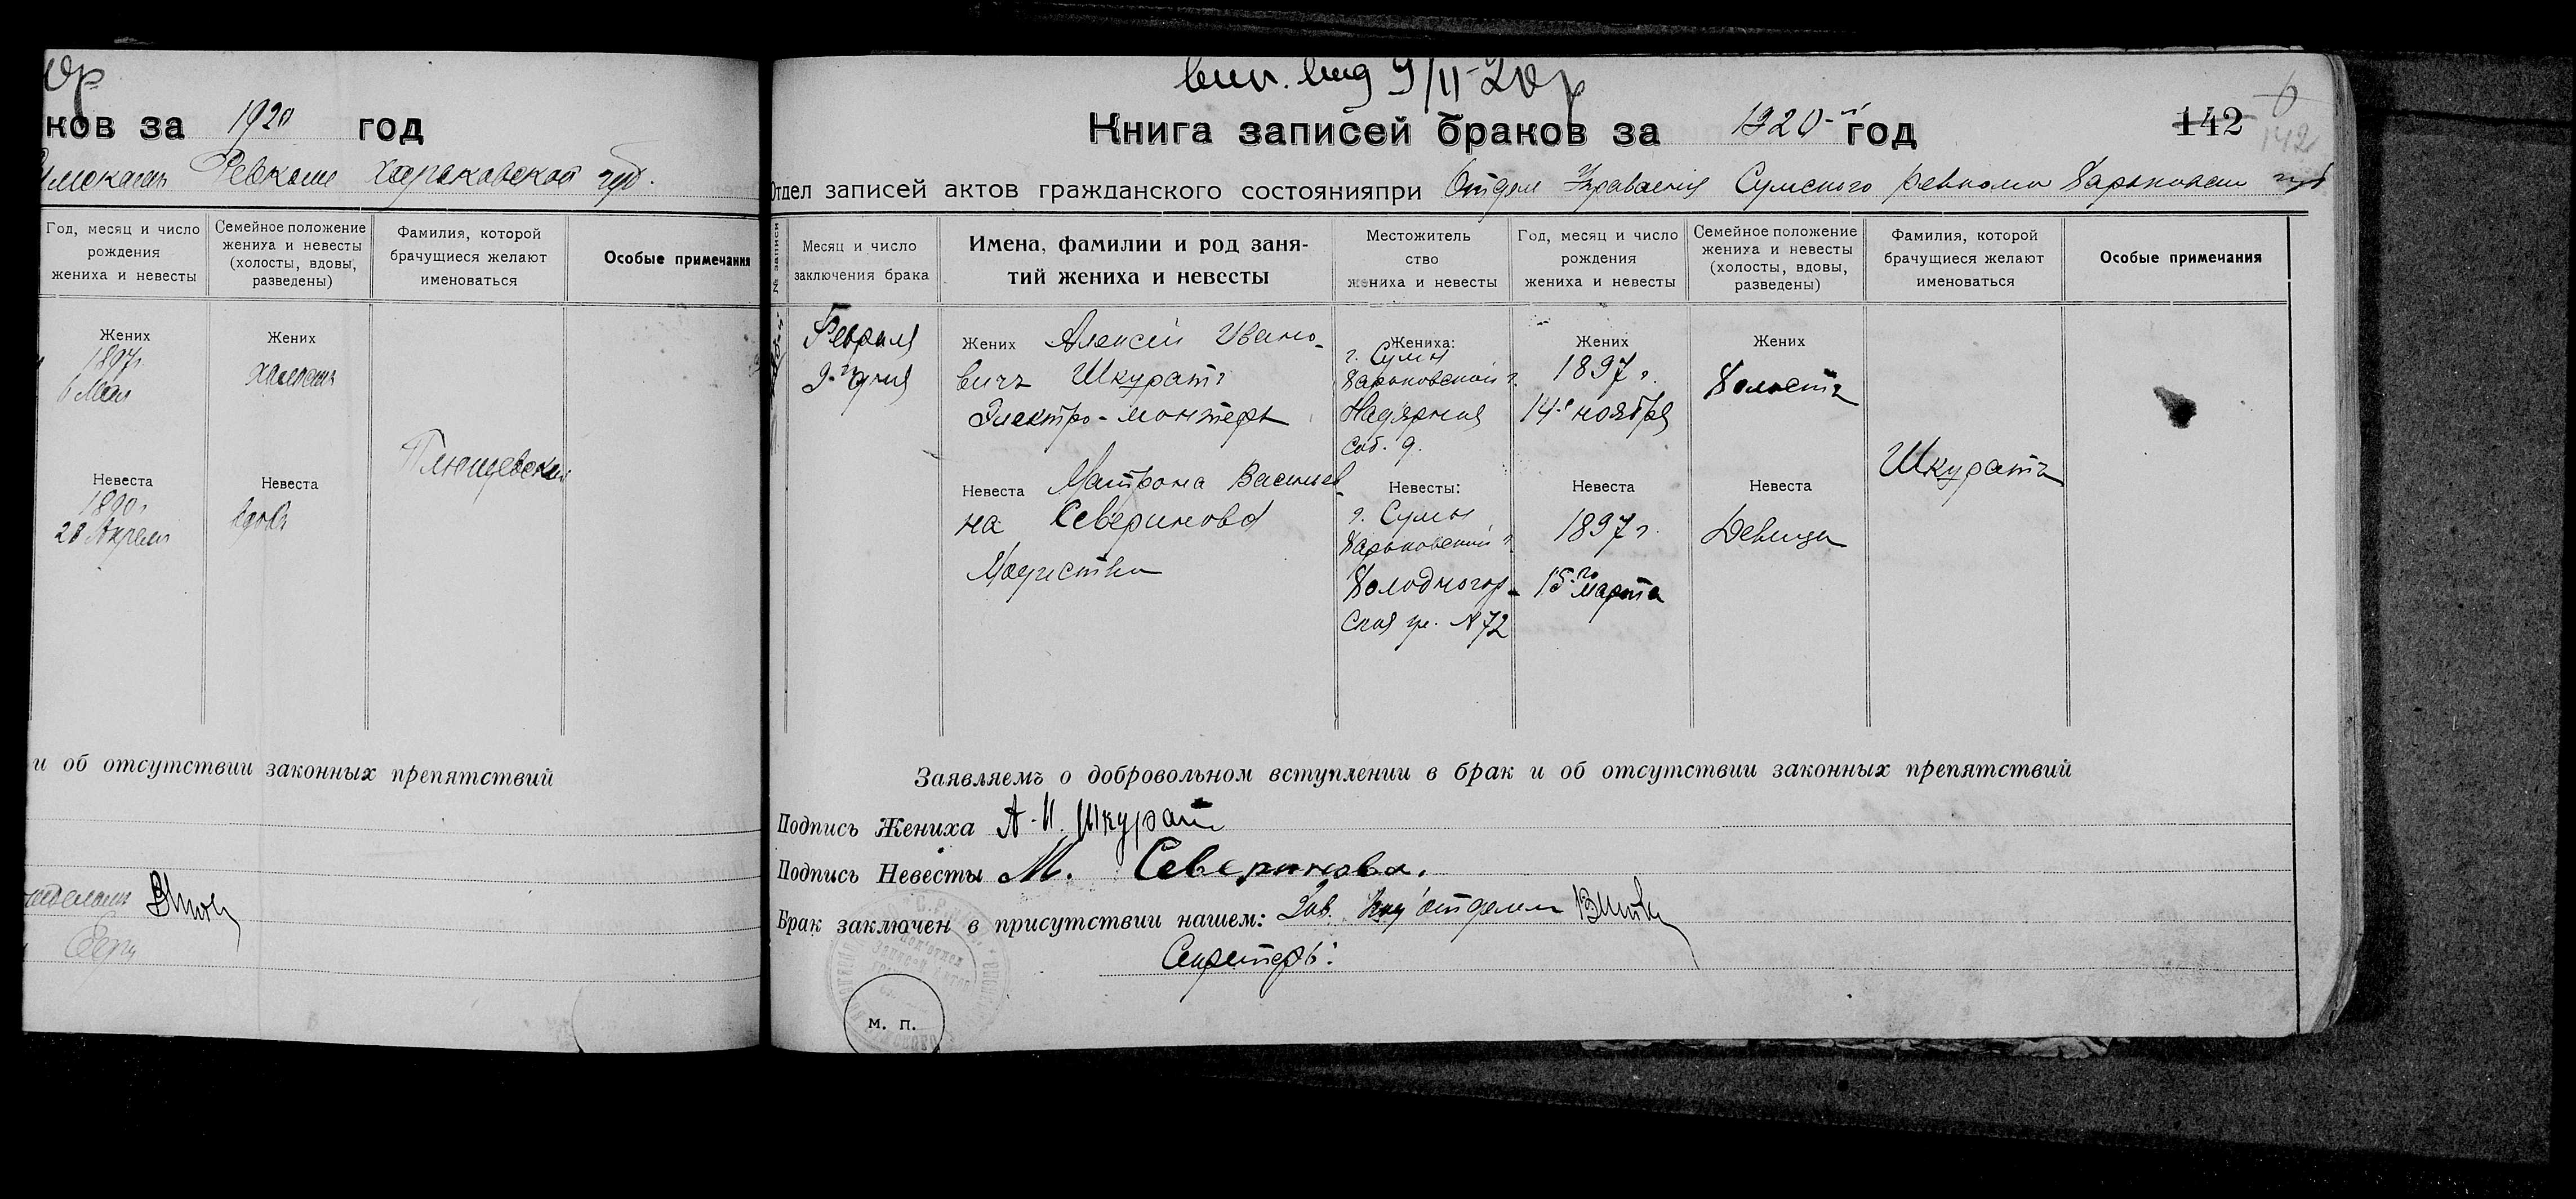 ков за 1920 год
Ревкоме Харьковской губ.
Год, месяц и число рождения жениха и невесты
Семейное положение жениха и невесты (холосты, вдовы, разведены)
Фамилия, которой брачущиеся желают именоваться
Особые примечания
Жених
1897 г.
6 Мая
Жених
холост
Плющевские
Невеста
1890 г.
28 Апреля
Невеста
вдова
и об отсутствии законных препятствий
9/II-20 г.
Книга записей браков за 1920-й год
142
142
Отдел записей актов гражданского состоянияпри Отделе Управления Сумского Ревкома Харьковской губ
№ записи
Месяц и число
заключения брака
Имена, фамилии и род заня-
тий жениха и невесты
Местожитель
ство
жениха и невесты
Год, месяц и число
рождения
жениха и невесты
Семейное положение
жениха и невесты
(холосты, вдовы,
разведены)
Фамилия, которой
брачущиеся желают
именоваться
Особые примечания
Февраля
9-го дня
Жених Алексей Ивано-
вичъ Шкуратъ
Электро-монтеръ
Невеста Матрона Васильев-
на Северинова
Модистка
Жениха:
г. Сумы
Харьковской г.
Надярная
соб. д.
Невесты:
г. Сумы
Харьковской г.
Холодногор-
ская ул. № 72
Жених
1897 г.
14-го ноября
Невеста
1897 г.
15-го марта
Жених
Холостъ
Невеста
Девица
Шкуратъ
Заявляемъ о добровольном вступлении в брак и об отсутствии законных препятствий
Подпись Жениха А. И. Шкурат
Подпись Невесты М. Северинова.
Брак заключен в присутствии нашем: Зав. Под'отделом
Секретарь:
м. п.